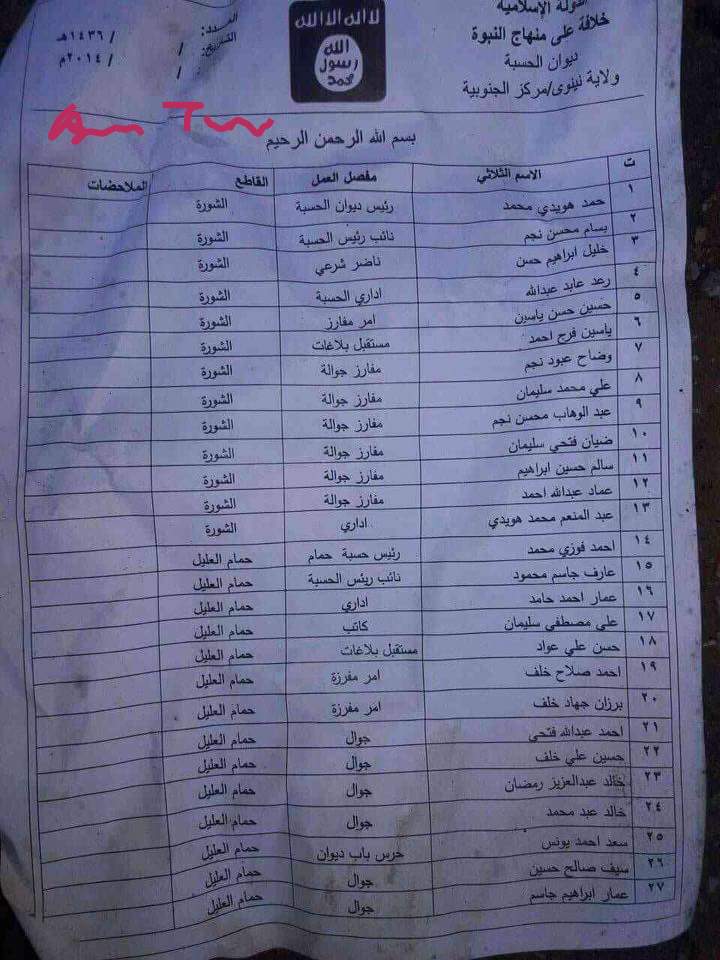 الدولة الإسلامية
خلافة على منهاج النبوة
ديوان الحسبة
ولاية نينوى/مركز الجنوبية
لا اله الا الله
الله
رسول
محمد
العدد:
التاريخ: / / ١٤٣٦هـ
/ / ٢٠١٤م
بسم الله الرحمن الرحيم
ت الاسم الثلاثي مفصل العمل القاطع الملاحضات
١ حمد هويدي محمد رئيس ديوان الحسبة الشورة
٢ بسام محسن نجم نائب رئيس الحسبة الشورة
٣ خليل ابراهيم حسن ناضر شرعي الشورة
٤ رعد عابد عبدالله اداري الحسبة الشورة
٥ حسين حسن ياسين امر مفارز الشورة
٦ ياسين فرح احمد مستقبل بلاغات الشورة
٧ وضاح عبود نجم مفارز جوالة الشورة
٨ علي محمد سليمان مفارز جوالة الشورة
٩ عبد الوهاب محسن نجم مفارز جوالة الشورة
١٠ ضيان فتحي سليمان مفارز جوالة الشورة
١١ سالم حسين ابراهيم مفارز جوالة الشورة
١٢ عماد عبدالله احمد مفارز جوالة الشورة
١٣ عبد المنعم محمد هويدي اداري الشورة
١٤ احمد فوزي محمد رئيس حسبة حمام حمام العليل
١٥ عارف جاسم محمود نائب ريئس الحسبة حمام العليل
١٦ عمار احمد حامد اداري حمام العليل
١٧ علي مصطفى سليمان كاتب حمام العليل
١٨ حسن علي عواد مستقبل بلاغات حمام العليل
١٩ احمد صلاح خلف امر مفرزة حمام العليل
٢٠ برزان جهاد خلف امر مفرزة حمام العليل
٢١ احمد عبدالله فتحي جوال حمام العليل
٢٢ حسين علي خلف جوال حمام العليل
٢٣ خالد عبدالعزيز رمضان جوال حمام العليل
٢٤ خالد عبد محمد جوال حمام العليل
٢٥ سعد احمد يونس حرس باب ديوان حمام العليل
٢٦ سيف صالح حسين جوال حمام العليل
٢٧ عمار ابراهيم جاسم جوال حمام العليل